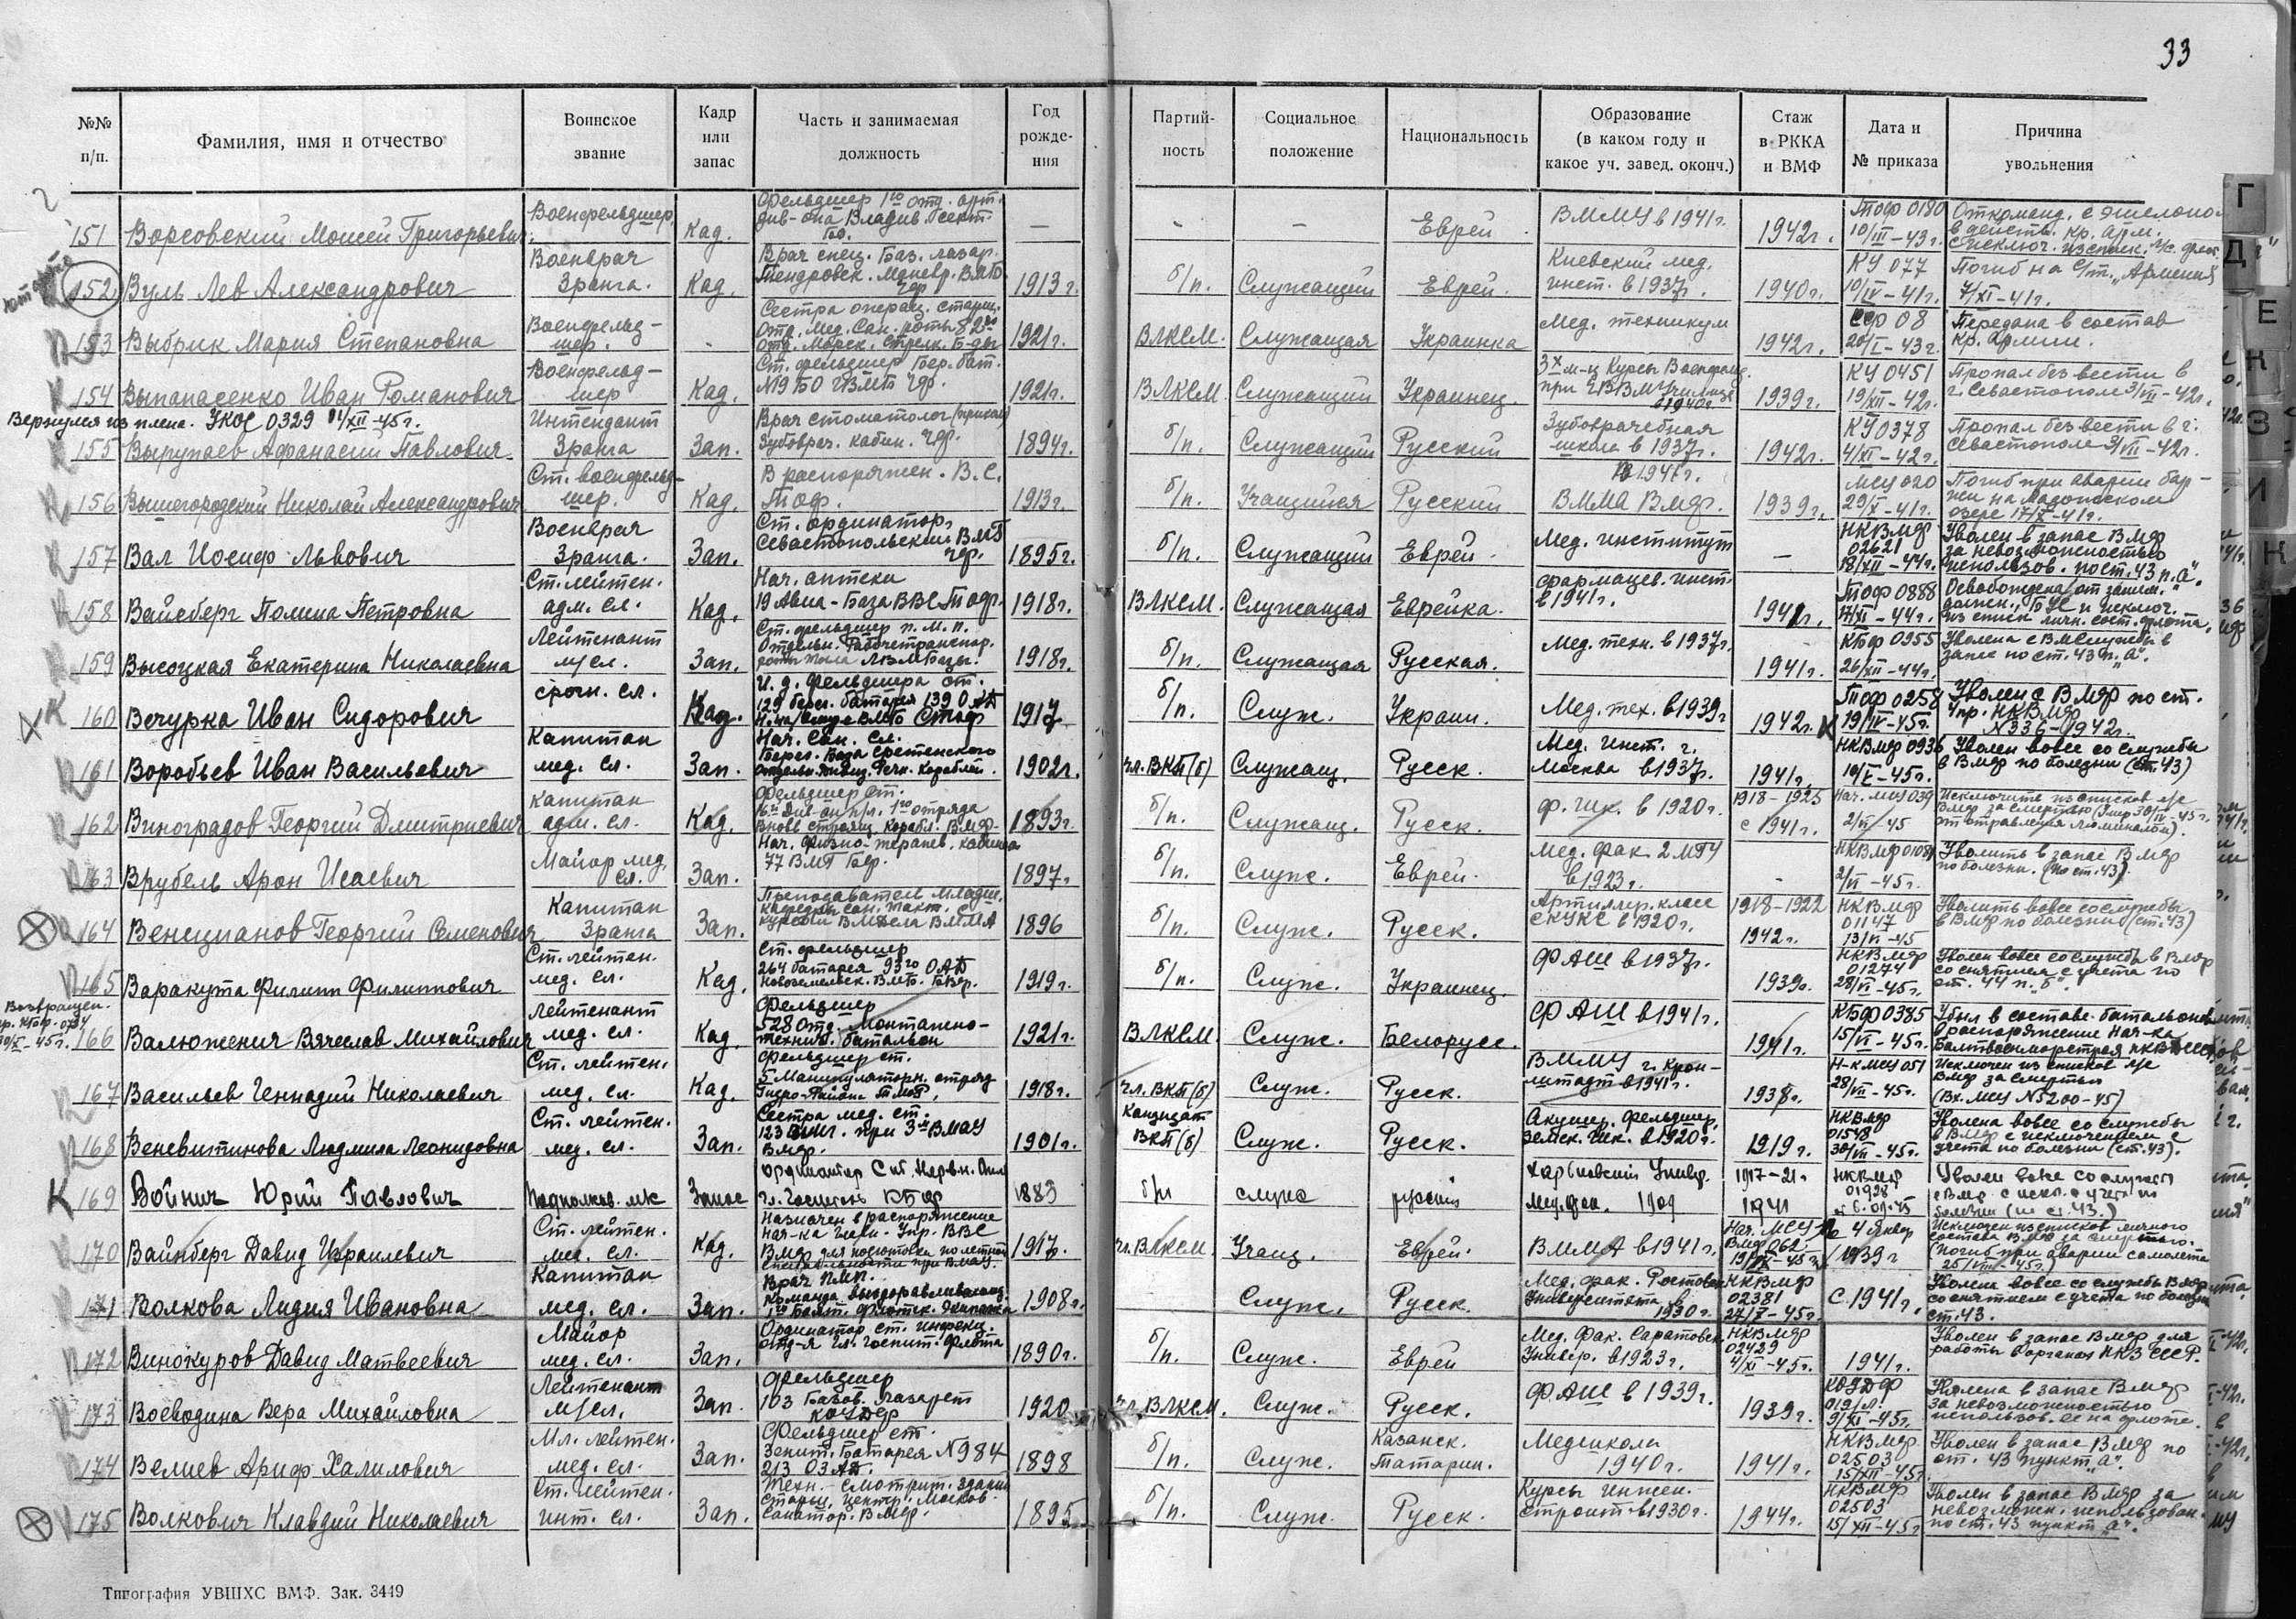 33
№№ п/п.
Фамилия, имя и отчество
Воинское звание
Кадр или запас
Часть и занимаемая должность
Год рождения
Партийность
Социальное положение
Национальность
Образование (в каком году и какое уч. завед. оконч.)
Стаж в РККА и ВМФ
Дата и № приказа
Причина увольнения
151 Ворсовский Моисей Григорьевич Военфельдшер Кад. Фельдшер 1го отд. арт. див-она Владив. сект. БО. — - - Еврей ВММУ в 1941г. 1942г. Тоф 0180 10/III-43г. Откоманд. с эшелоном в действ. кр. арм. с исключ. из списк. л/с флот.
152 Вуль Лев Александрович Военврач 3ранга. Кад. Врач спец. Баз. лазар. Тендровск. Маневр. ВМБ Чф 1913г. б/п. Служащий Еврей. Киевский мед. инст. в 1937г. 1940г. КУ 077 10/IV-41г. Погиб на с/т. „Армения" 7/XI-41г.
153 Выбрик Мария Степановна Военфельд-шер. - Сестра операц. старш. Отд. Мед. Сан. роты 82й Отд. Морск. Стрелк. Б-ды 1921г. ВЛКСМ. Служащая Украинка Мед. техникум 1942г. 08 20/I-43г. Передана в состав кр. армии.
154 Выпанасенко Иван Романович Военфельд-шер Кад. Ст. фельдшер Бер. бат. №19 БО ГВМБ Чф. 1921г. ВЛКСМ Служащий Украинец. 3х м-ц курсы Военфельд. при ЧВВМУчилище в 1940г. 1939г. КУ 0451 19/XII-42г. Пропал без вести в г. Севастополе 3/VII-42г.
Вернулся из плена. УКОС 0329 04/XII-45г.
155 Вырупаев Афанасий Павлович Интендант 3ранга Зап. Врач стоматолог Зубоврач. кабин. Чф. 1894г. б/п. Служащий Русский Зубоврачебная школа в 1937г. 1942г. КУ 0378 4/XI-42г. Пропал без вести в г. Севастополе 3/VII-42г.
156 Вышегородский Николай Александрович Ст. военфельд-шер. Кад. В распоряжен. В.С. Тоф. 1913г. б/п. Учащийся Русский В 1941г. ВММА ВМф. 1939г. МСУ 020 29/X-41г. Погиб при аварии бар-жи на Ладожском озере 17/IX-41г.
157 Вал Иосиф Львович Военврач 3ранга. Зап. Ст. ординатор, Севастопольский ВМГ Чф. 1895г. б/п. Служащий Еврей. Мед. институт — НКВМф 02621 18/XII-44г. Уволен в запас ВМф за невозможностью использов. по ст. 43 п. „а".
158 Вайсберг Полина Петровна Ст. лейтен. адм. сл. Кад. Нач. аптеки 19 Авиа-База ВВС Тоф. 1918г. ВЛКСМ. Служащая Еврейка. фармацев. инст. в 1941г. 1941г. Тоф 0888 17/XI-44г. Освобождена от заним. должн., БУС и исключ. из списк. личн. сост. флота.
159 Высоцкая Екатерина Николаевна Лейтенант м/сл. Зап. Ст. фельдшер п. М. п. Отдельн. роты тыла ЛВМБазы. 1918г. б/п. Служащая Русская. Мед. техн. в 1937г. 1941г. КБф 0955 26/XII-44г. Уволена с ВМслужбы в запас по ст. 43 п. „а".
160 Вечурка Иван Сидорович срочн. сл. Кад. И. д. фельдшера ст. 129 берег. батарея 139 ОАД 1917 б/п. Служ. Украин. Мед. тех. в 1939г 1942г. Тоф 0258 19/IV-45г. Уволен с ВМф по ст. Упр. НКВМф №336-1942г.
161 Воробьев Иван Васильевич Капитан мед. сл. Зап. Нач. Сан. Сл. Берег. База Сретенского отдельн. дивиз. Речн. Кораблей. 1902г. чл. ВКП(б) Служащ. Русск. Мед. Инст. г. Москва в 1937г. 1941г. НКВМф 0936 10/V-45г. Уволен вовсе со службы в ВМф по болезни (ст. 43)
162 Виноградов Георгий Дмитриевич Капитан адм. сл. Кад. Фельдшер ст. Див-он п/л. 1го отряда Вновь строящ. Корабл. ВМф 1893г. б/п. Служащ. Русск. ф. шк. в 1920г. 1918-1925 с 1941г. Нач. МСУ 039 2/VI-45 Исключить из списков л/с ВМф за смертью (Умер 30/IV-45г. от отравления люминалом).
163 Врубель Арон Исаевич Майор мед. сл. Зап. Нач. физио-терапев. кабинета 77 ВМГ Бф. 1897г. б/п. Служ. Еврей. Мед. фак. 2 МГУ в 1923г. - НКВМф 01081 2/VI-45г. Уволить в запас ВМф по болезни. (по ст. 43)
164 Венецианов Георгий Семенович Капитан 3ранга Зап. Преподаватель младш. кафедры сан. такт. с курсом ВМдела ВММА 1896 б/п. Служ. Русск. Артиллер. класс СКУКС в 1920г. 1918-1922 1942г. НКВМф 01147 13/VI-45 Уволить вовсе со службы в ВМф по болезни (ст. 43)
165 Варакута Филипп Филиппович Ст. лейтен. мед. сл. Кад. Ст. фельдшер 264 батарея 93го ОАД Новоземельск. ВМБ. БВф. 1919г. б/п. Служ. Украинец. ФАШ в 1937г. 1939г. НКВМф 01274 28/VI-45г. Уволен вовсе со службы в ВМф со снятием с учета по ст. 44 п. „б".
Возвращен. пр. КБф. 0734 10/X-45г.
166 Валюженич Вячеслав Михайлович Лейтенант мед. сл. Кад. Фельдшер 528 Отд. Монтажно-технич. батальон 1921г. ВЛКСМ Служ. Белорусс. ФАШ в 1941г. 1941г. КБф 0385 15/VI-45г. Убыл в составе батальонов в распоряжение Нач-ка Балтвоенморстроя
167 Васильев Геннадий Николаевич Ст. лейтен. мед. сл. Кад. Фельдшер ст. 5 Манипуляторн. отряд Гидро-Района 1918г. чл. ВКП(б) Служ. Русск. ВММУ г. Крон-штадт в 1941г. 1938г. Н-к МСУ 051 28/VII-45г. Исключен из списков л/с ВМф за смертью (Вх. МСУ №5200-45)
168 Веневитинова Людмила Леонидовна Ст. лейтен. мед. сл. Зап. Сестра мед. ст. 123 ВМГ. при 3м ВМАУ ВМф. 1901г. Кандидат ВКП(б) Служ. Русск. Акушер. Фельдшер. земск. шк. в 1920г. 1919г. НКВМф 01548 30/VII-45г. Уволена вовсе со службы в ВМф с исключением с учета по болезни (ст. 43).
169 Войнич Юрий Павлович Подполков. м/с Запас Ординатор Гл. Госпиталь КБф 1883 б/п служ русский Харьковский Универ. Мед. фак. 1909 1917-21г 1941 НКВМф 01928 6.09.45 Уволен вовсе со службы в ВМф с искл. с учета по болезни (по ст. 43.)
170 Вайнберг Давид Израилевич Ст. лейтен. мед. сл. Кад. Назначен в распоряжение Нач-ка Упр. ВВС ВМф для подготовки по летной специальности при ВМАУ. 1917г. чл. ВЛКСМ. Учащ. Еврей. ВММА в 1941г. Нач. МСУ ВМф 062 19/IX-45г. 4 Январ 1939г Исключен из списков личного состава ВМф за смертью. (Погиб при аварии самолета 25/VIII-45г.)
171 Волкова Лидия Ивановна Капитан мед. сл. Зап. Врач ПМП. Команда выздоравливающ. 1го Балт. Флотск. Экипажа 1908г. Служ. Русск. Мед. фак. Ростовск. Университета в 1930г. С 1941г. НКВМф 02381 27/X-45г. Уволена вовсе со службы ВМф со снятием с учета по болезни ст. 43.
172 Винокуров Давид Матвеевич Майор мед. сл. Зап. Ординатор ст. инфекц. отд-я Гл. Госпит. Флота 1890г. б/п. Служ. Еврей Мед. Фак. Саратовск. Универ. в 1923г. НКВМф 02429 4/XI-45г. 1941г. Уволен в запас ВМф для работы в органах НКЗ СССР.
173 Воеводина Вера Михайловна Лейтенант м/сл. Зап. Фельдшер 103 Базов. Лазарет КОУДф 1920 чл. ВЛКСМ. Служ. Русск. ФАШ в 1939г. 1939г. КОУДф 019/л. 9/XI-45г. Уволена в запас ВМф за невозможностью использов. ее на флоте.
174 Велиев Ариф Халилович Мл. лейтен. мед. сл. Зап. Фельдшер ст. Зенит. Батарея №984 213 ОЗАД. 1898 б/п. Служ. Казанск. Татарин. Медшкола 1940г. 1941г. НКВМф 02503 15/XII-45г Уволен в запас ВМф по ст. 43 пункт „а".
175 Волкович Клавдий Николаевич Ст. лейтен. инт. сл. Зап. Техн.-смотрит. здания старш. Центр. Москов. Санатор. ВМф. 1895 б/п. Служ. Русск. Курсы инжен. строит в 1930г. 1944г. НКВМф 02503 15/XII-45г Уволен в запас ВМф за невозможн. использован. по ст. 43 пункт „а".
Типография УВШХС ВМФ. Зак. 3449
Г
Д
Е
З
И